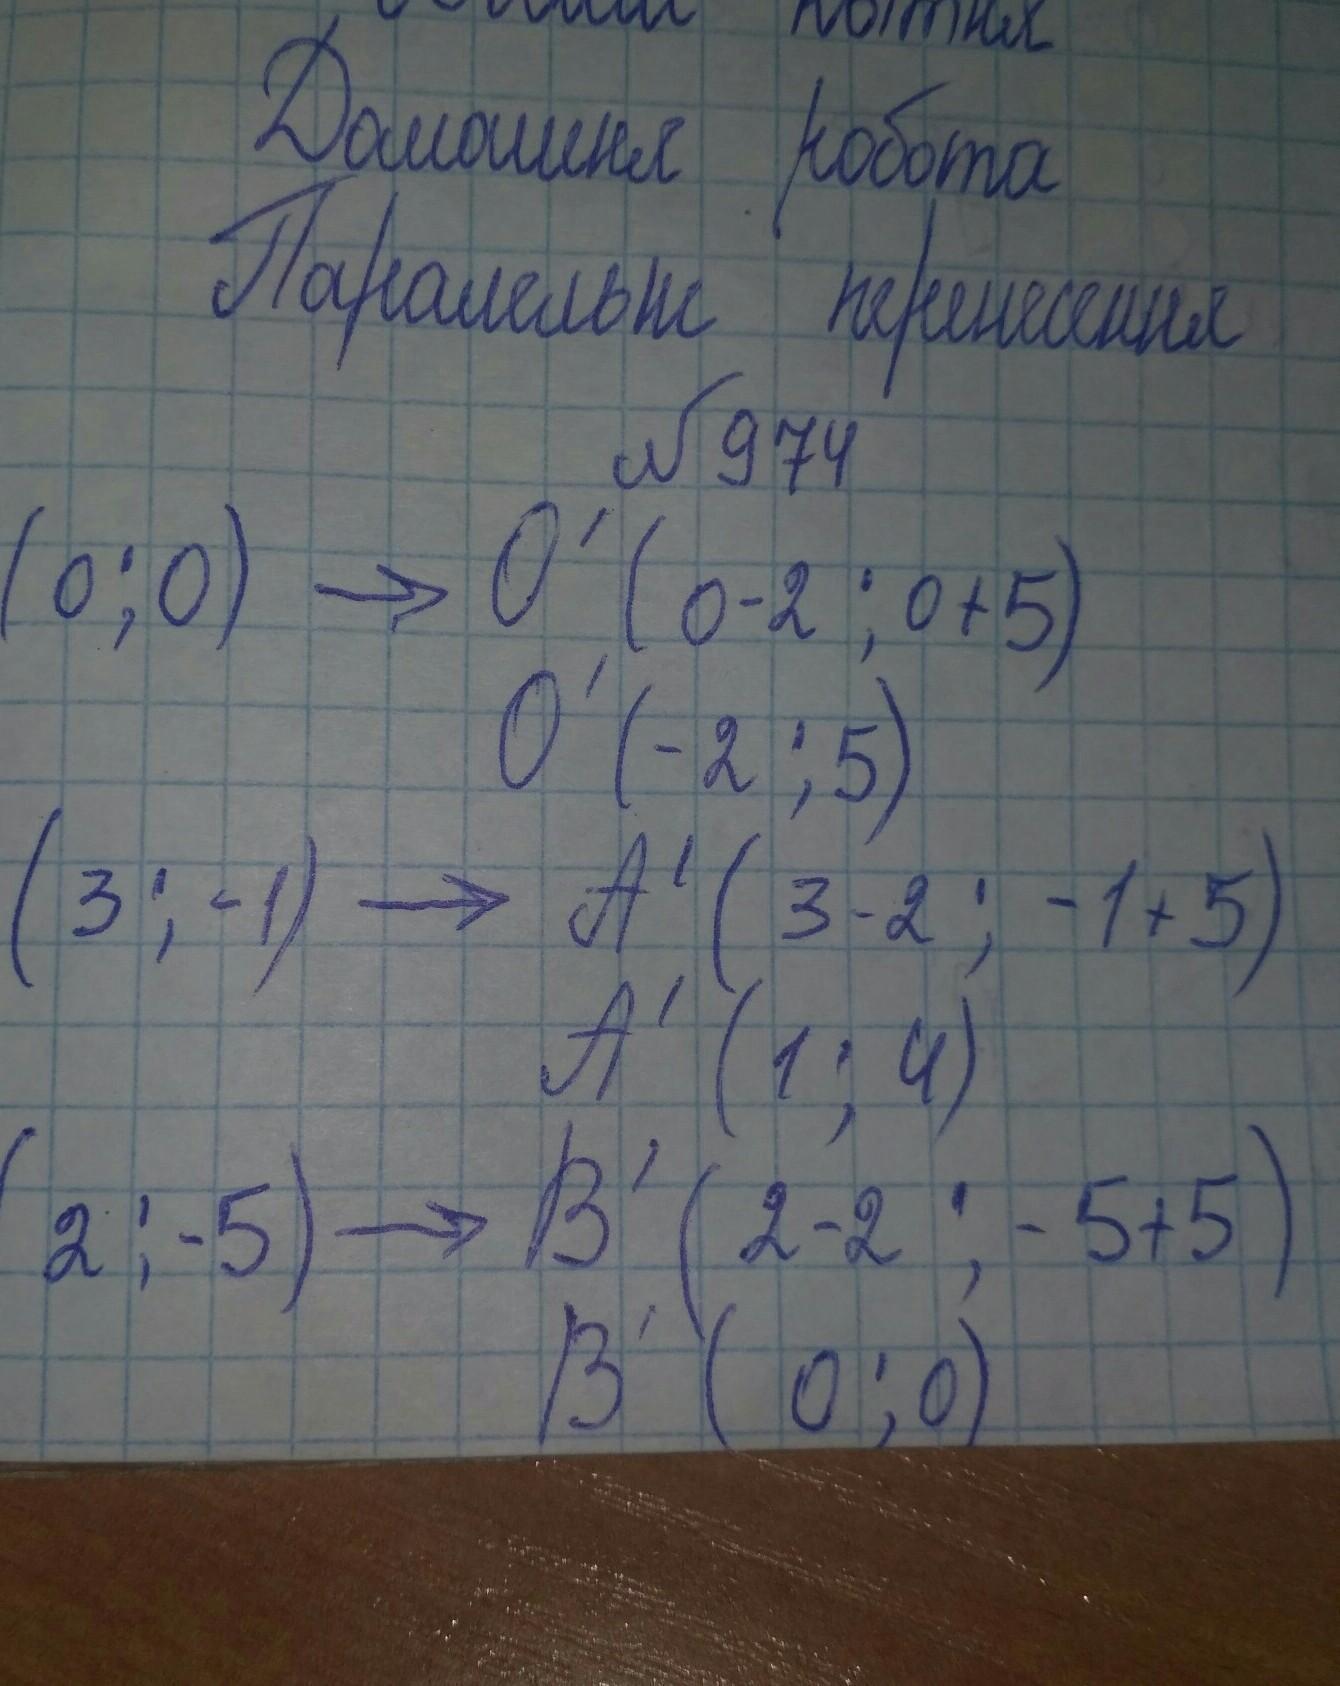 Домашня робота
Паралельне перенесення
№ 974
(0;0) → O' (0-2 ; 0+5)
O' (-2 ; 5)
(3 ; -1) → A' (3-2 ; -1+5)
A' (1 ; 4)
(2 ; -5) → B' (2-2 ; -5+5)
B' (0 ; 0)